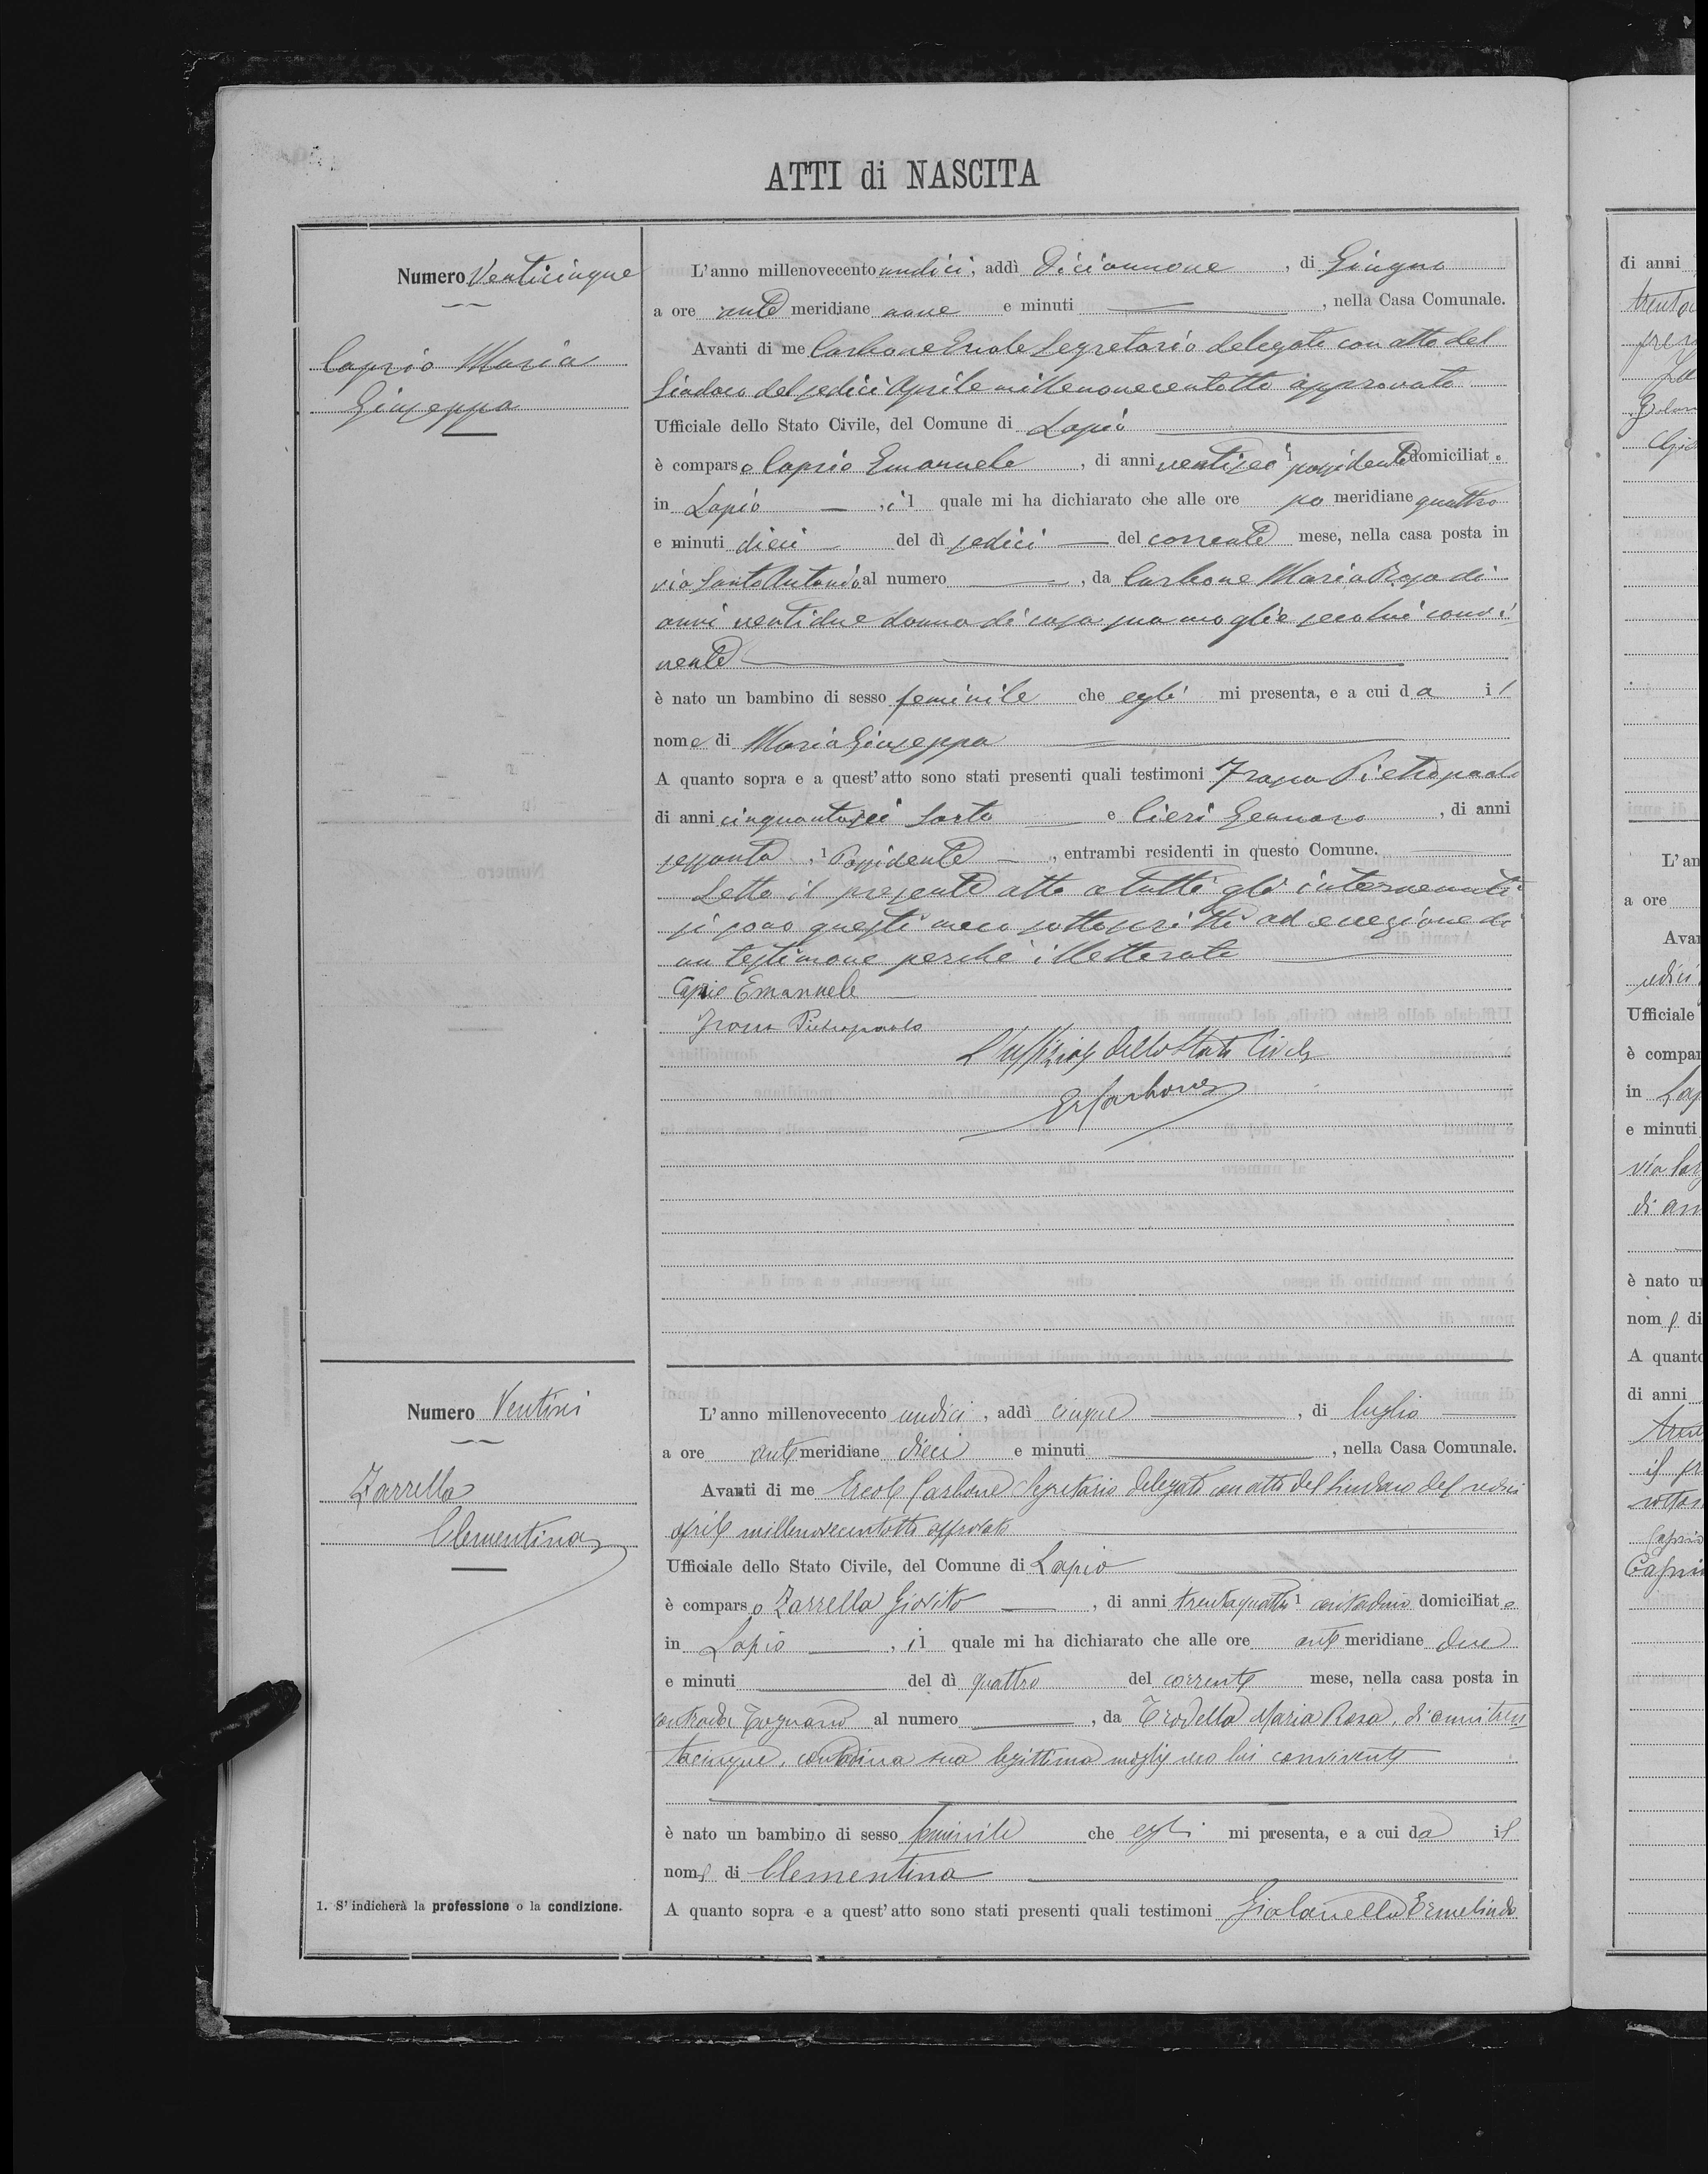 ATTI di NASCITA
Numero Venticinque
Caprio Maria
Giuseppa
L'anno millenovecento undici, addì Diciannove, di Giugno
a ore ante meridiane nove e minuti —, nella Casa Comunale.
Avanti di me Carbone Ercole Segretario delegato con atto del
Sindaco del sedici Aprile millenovecentotto approvato
Ufficiale dello Stato Civile, del Comune di Lapio
è comparso Caprio Emanuele, di anni ventisei 1 possidente domiciliato
in Lapio —, il quale mi ha dichiarato che alle ore po meridiane quattro
e minuti dieci — del dì sedici — del corrente mese, nella casa posta in
via Santo Antonio al numero —, da Carbone Maria Rosa di
anni ventidue donna di casa sua moglie seco lui convi
vente —
è nato un bambino di sesso feminile che egli mi presenta, e a cui da il
nome di Maria Giuseppa —
A quanto sopra e a quest'atto sono stati presenti quali testimoni Pietropaolo
di anni cinquantasei Sarto — e Cieri Gennaro, di anni
sessanta, 1 Possidente —, entrambi residenti in questo Comune.
Letto il presente atto a tutti gli intervenuti
si sono questi meco sottoscritti ad eccezione di
un testimone perché illetterato
Caprio Emanuele
Pietropaolo
L'uffiziale dello Stato Civile
E. Carbone
Numero Ventisei
Zarrella
Clementina
1. S'indicherà la professione o la condizione.
L'anno millenovecento undici, addì cinque —, di luglio —
a ore ante meridiane dieci e minuti —, nella Casa Comunale.
Avanti di me Ercole Carbone Segretario delegato con atto del Sindaco del sedici
aprile millenovecentotto approvato
Ufficiale dello Stato Civile, del Comune di Lapio
è comparso Zarrella Giovito —, di anni trentaquattro 1 contadino domiciliato
in Lapio —, il quale mi ha dichiarato che alle ore ante meridiane due
e minuti — del dì quattro del corrente mese, nella casa posta in
contrada Tognano al numero —, da Trodella Maria Rosa, di anni tren
tacinque, contadina sua legittima moglie seco lui convivente
è nato un bambino di sesso feminile che egli mi presenta, e a cui da il
nome di Clementina
A quanto sopra e a quest'atto sono stati presenti quali testimoni Ermelindo